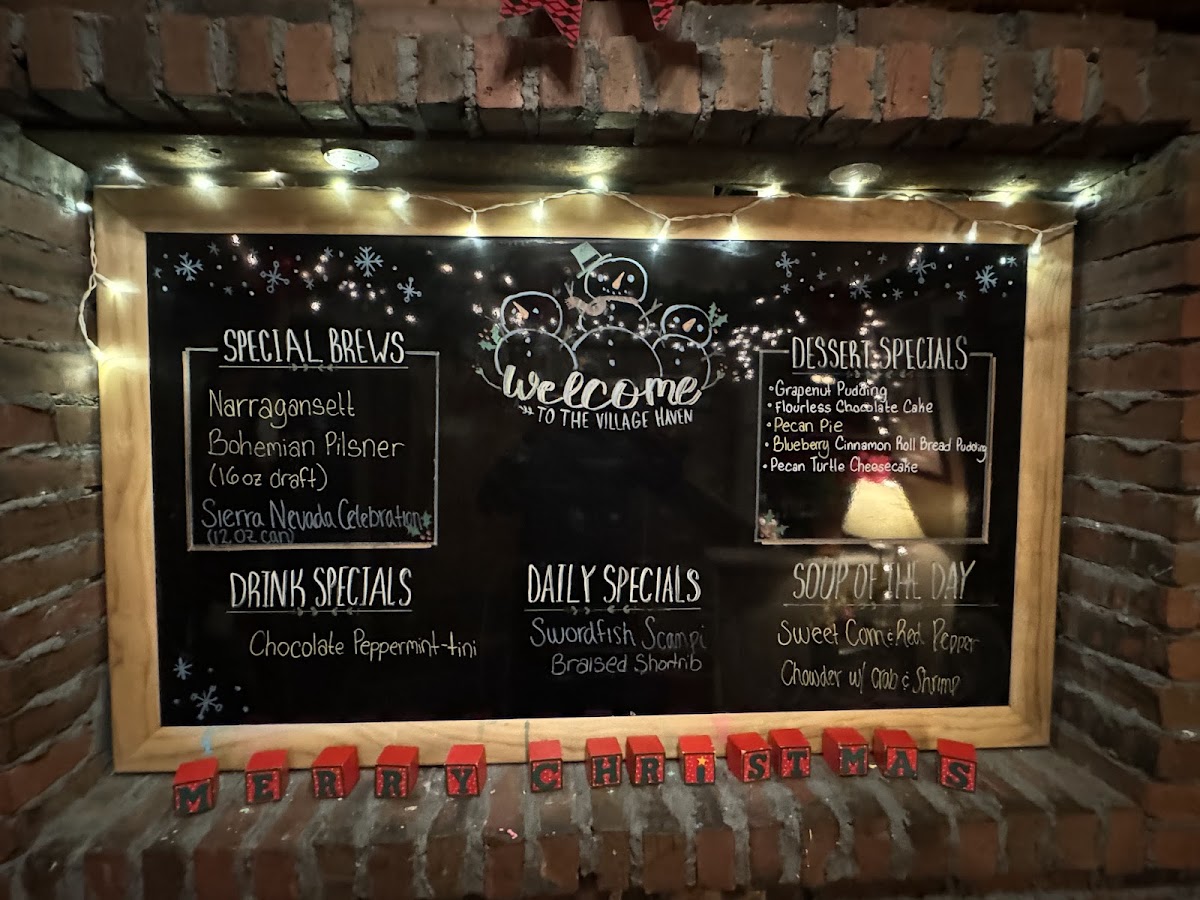 Welcome
TO THE VILLAGE HAVEN
SPECIAL BREWS
Narragansett
Bohemian Pilsner
(16oz draft)
Sierra Nevada Celebration
(12oz can)
DESSERT SPECIALS
• Grapenut Pudding
• Flourless Chocolate Cake
• Pecan Pie
• Blueberry Cinnamon Roll Bread Pudding
• Pecan Turtle Cheesecake
DRINK SPECIALS
Chocolate Peppermint-tini
DAILY SPECIALS
Swordfish Scampi
Braised Shortrib
SOUP OF THE DAY
Sweet Corn & Red Pepper
Chowder w/ Crab & Shrimp
MERRY CHRISTMAS